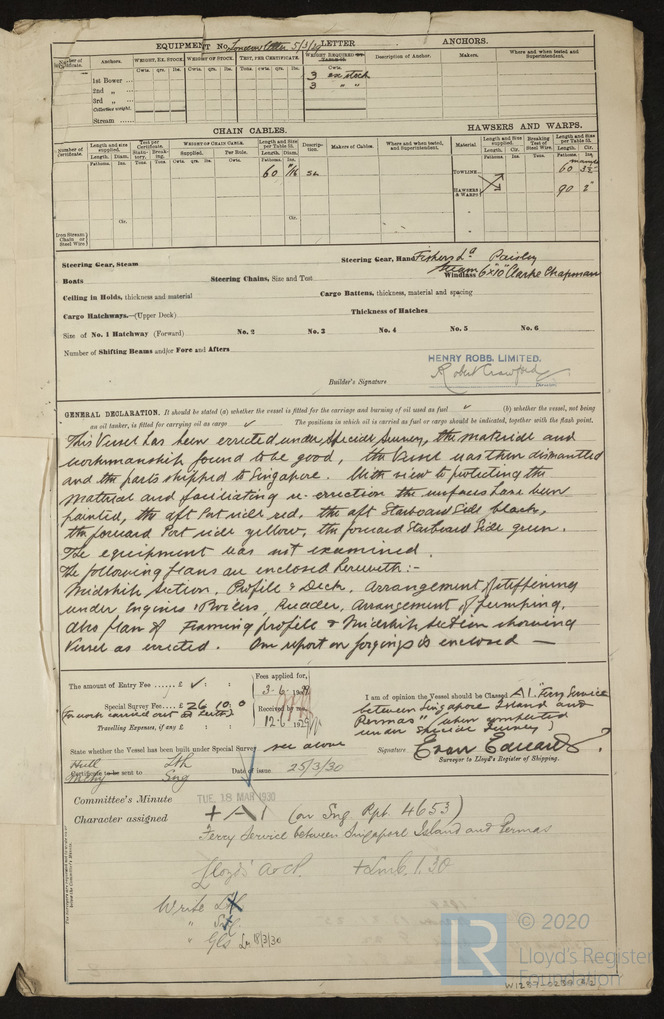 EQUIPMENT No. London letter 5/3/29 LETTER ANCHORS.
Number of Certificate. Anchors. WEIGHT, EX. STOCK. WEIGHT OF STOCK. TEST, PER CERTIFICATE. WEIGHT REQUIRED Description of Anchor. Makers. Where and when tested and Superintendent.
Cwts. qrs. lbs. Cwts. qrs. lbs. Cwts. qrs. lbs. Cwts.
1st Bower 3 ex stock
2nd „ 3 " "
3rd „
Collective weight.
Stream
CHAIN CABLES. HAWSERS AND WARPS.
Number of Certificate. Length and size supplied. Test per Certificate WEIGHT OF CHAIN CABLE. Length and Size per Table 31. Description. Makers of Cables. Where and when tested, and Superintendent. Material Length and Size supplied. Breaking Test of Steel Wire. Length and Size per Table 31.
Length. Diam. Statutory. Breaking. Supplied. Per Rule. Length. Diam. Length. Cir. Length. Cir.
Fathoms. Ins. Tons. Tons. Cwts. qrs. lbs. Cwts. Fathoms. Ins. Fathoms. Ins. Tons. Fathoms. Ins.
60 11/16 TOWLINE 60 3½"
HAWSERS & WARPS 90 2"
Cir. Cir.
Iron Stream Chain or Steel Wire
Steering Gear, Steam Steering Gear, Hand Fishers Ld Paisley
Boats Steering Chains, Size and Test Windlass Steam 6"x10" Clarke Chapman
Ceiling in Holds, thickness and material Cargo Battens, thickness, material and spacing
Cargo Hatchways.—(Upper Deck) Thickness of Hatches
Size of No. 1 Hatchway (Forward) No. 2 No. 3 No. 4 No. 5 No. 6
Number of Shifting Beams and/or Fore and Afters
HENRY ROBB, LIMITED.
Robert Crawford
Builder's Signature
GENERAL DECLARATION. It should be stated (a) whether the vessel is fitted for the carriage and burning of oil used as fuel ✓ (b) whether the vessel, not being
an oil tanker, is fitted for carrying oil as cargo ✓ The positions in which oil is carried as fuel or cargo should be indicated, together with the flash point.
This Vessel has been erected, under Special Survey, the materials and
workmanship found to be good, the Vessel was then dismantled
and the parts shipped to Singapore. With view to protecting the
Material and faciliating re-erection the surfaces have been
painted, the aft Port side red, the aft Starboard Side black,
the forward Port side yellow, the forward Starboard Side green.
The equipment was not examined.
The following plans are enclosed herewith:-
Midship Section, Profile & Deck, Arrangement of stiffening
under Engines & Boilers, Rudder, Arrangement of pumping,
also plan of Framing profile & Midship Section showing
Vessel as erected. One report on forgings is enclosed —
The amount of Entry Fee £ ✓ : :
Fees applied for,
3-6-1929
Special Survey Fee £ 26 : 10 : 0
(for work carried out at Leith)
Received by me,
12.6.1929
Travelling Expenses, if any £ : :
I am of opinion the Vessel should be Classed A1. "Ferry Service
between Singapore Island and
Permas" (when completed
under special survey)
State whether the Vessel has been built under Special Survey see above
Signature Evan Edwards.
Surveyor to Lloyd's Register of Shipping.
Hull Lth
Certificate to be sent to Date of issue 25/3/30
Mchy Sng
Committee's Minute TUE. 18 MAR 1930
Character assigned +A1 (on Sng Rpt. 4653)
Ferry Service between Singapore Island and Permas
Lloyd's A&CP. +LMC 1.30
Write Lth
" Gls 18/3/30
© 2020
LR
Lloyd's Register
Foundation
W1287-0239 2/2